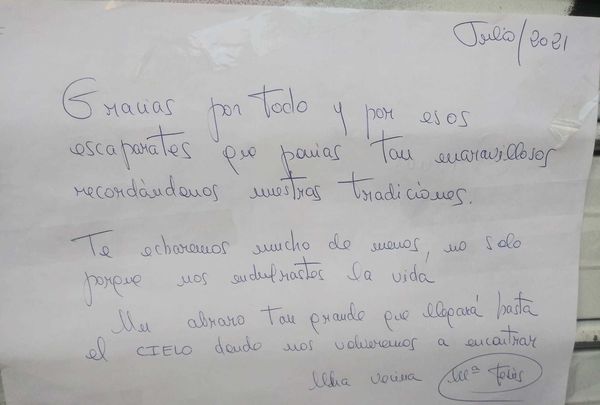 Julio/2021
Gracias por todo y por esos
escaparates que ponías tan maravillosos
recordándonos nuestras tradiciones.
Te echaremos mucho de menos, no solo
porque nos endulzastes la vida
Un abrazo tan grande que llegará hasta
el CIELO donde nos volveremos a encontrar
Una vecina Mª Jesús